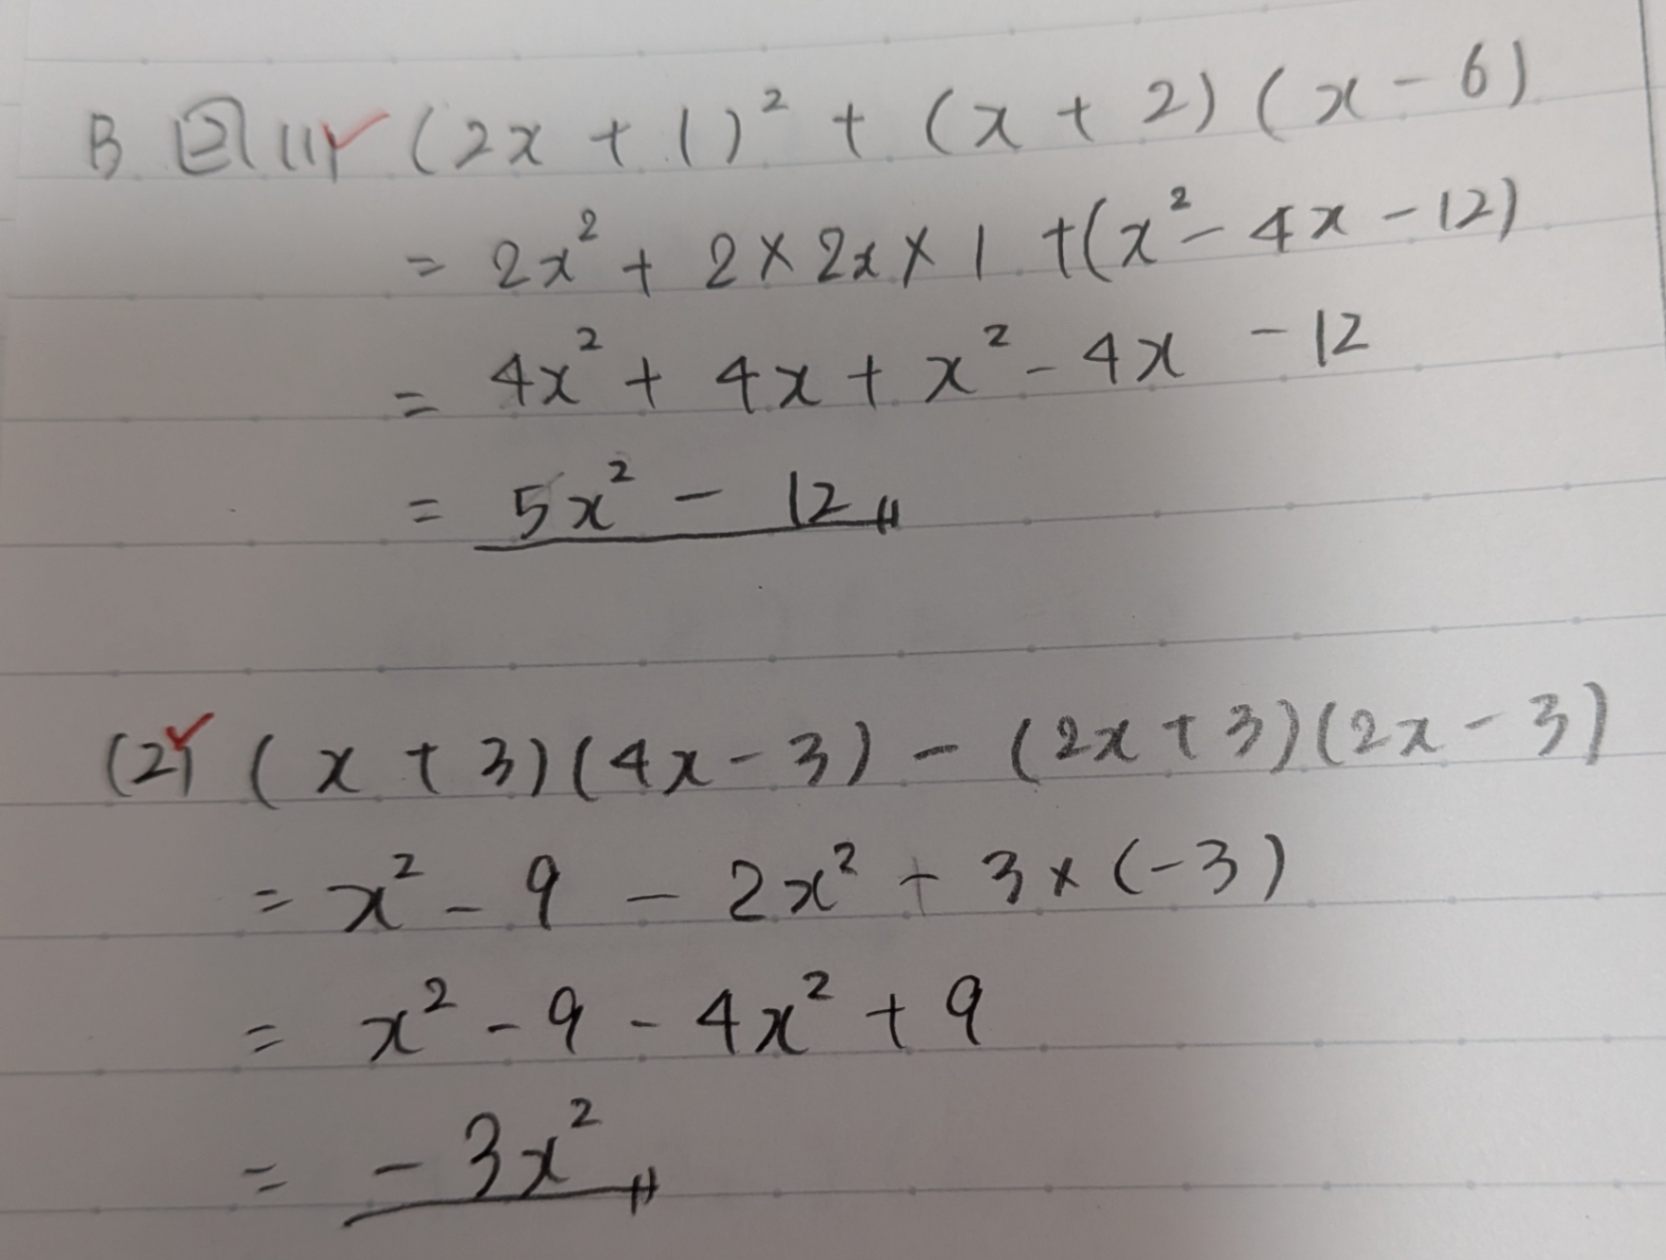 B 2 (1) (2x + 1)² + (x + 2)(x - 6)
= 2x² + 2 × 2x × 1 + (x² - 4x - 12)
= 4x² + 4x + x² - 4x - 12
= 5x² - 12
(2) (x + 3)(4x - 3) - (2x + 3)(2x - 3)
= x² - 9 - 2x² + 3 × (-3)
= x² - 9 - 4x² + 9
= - 3x²